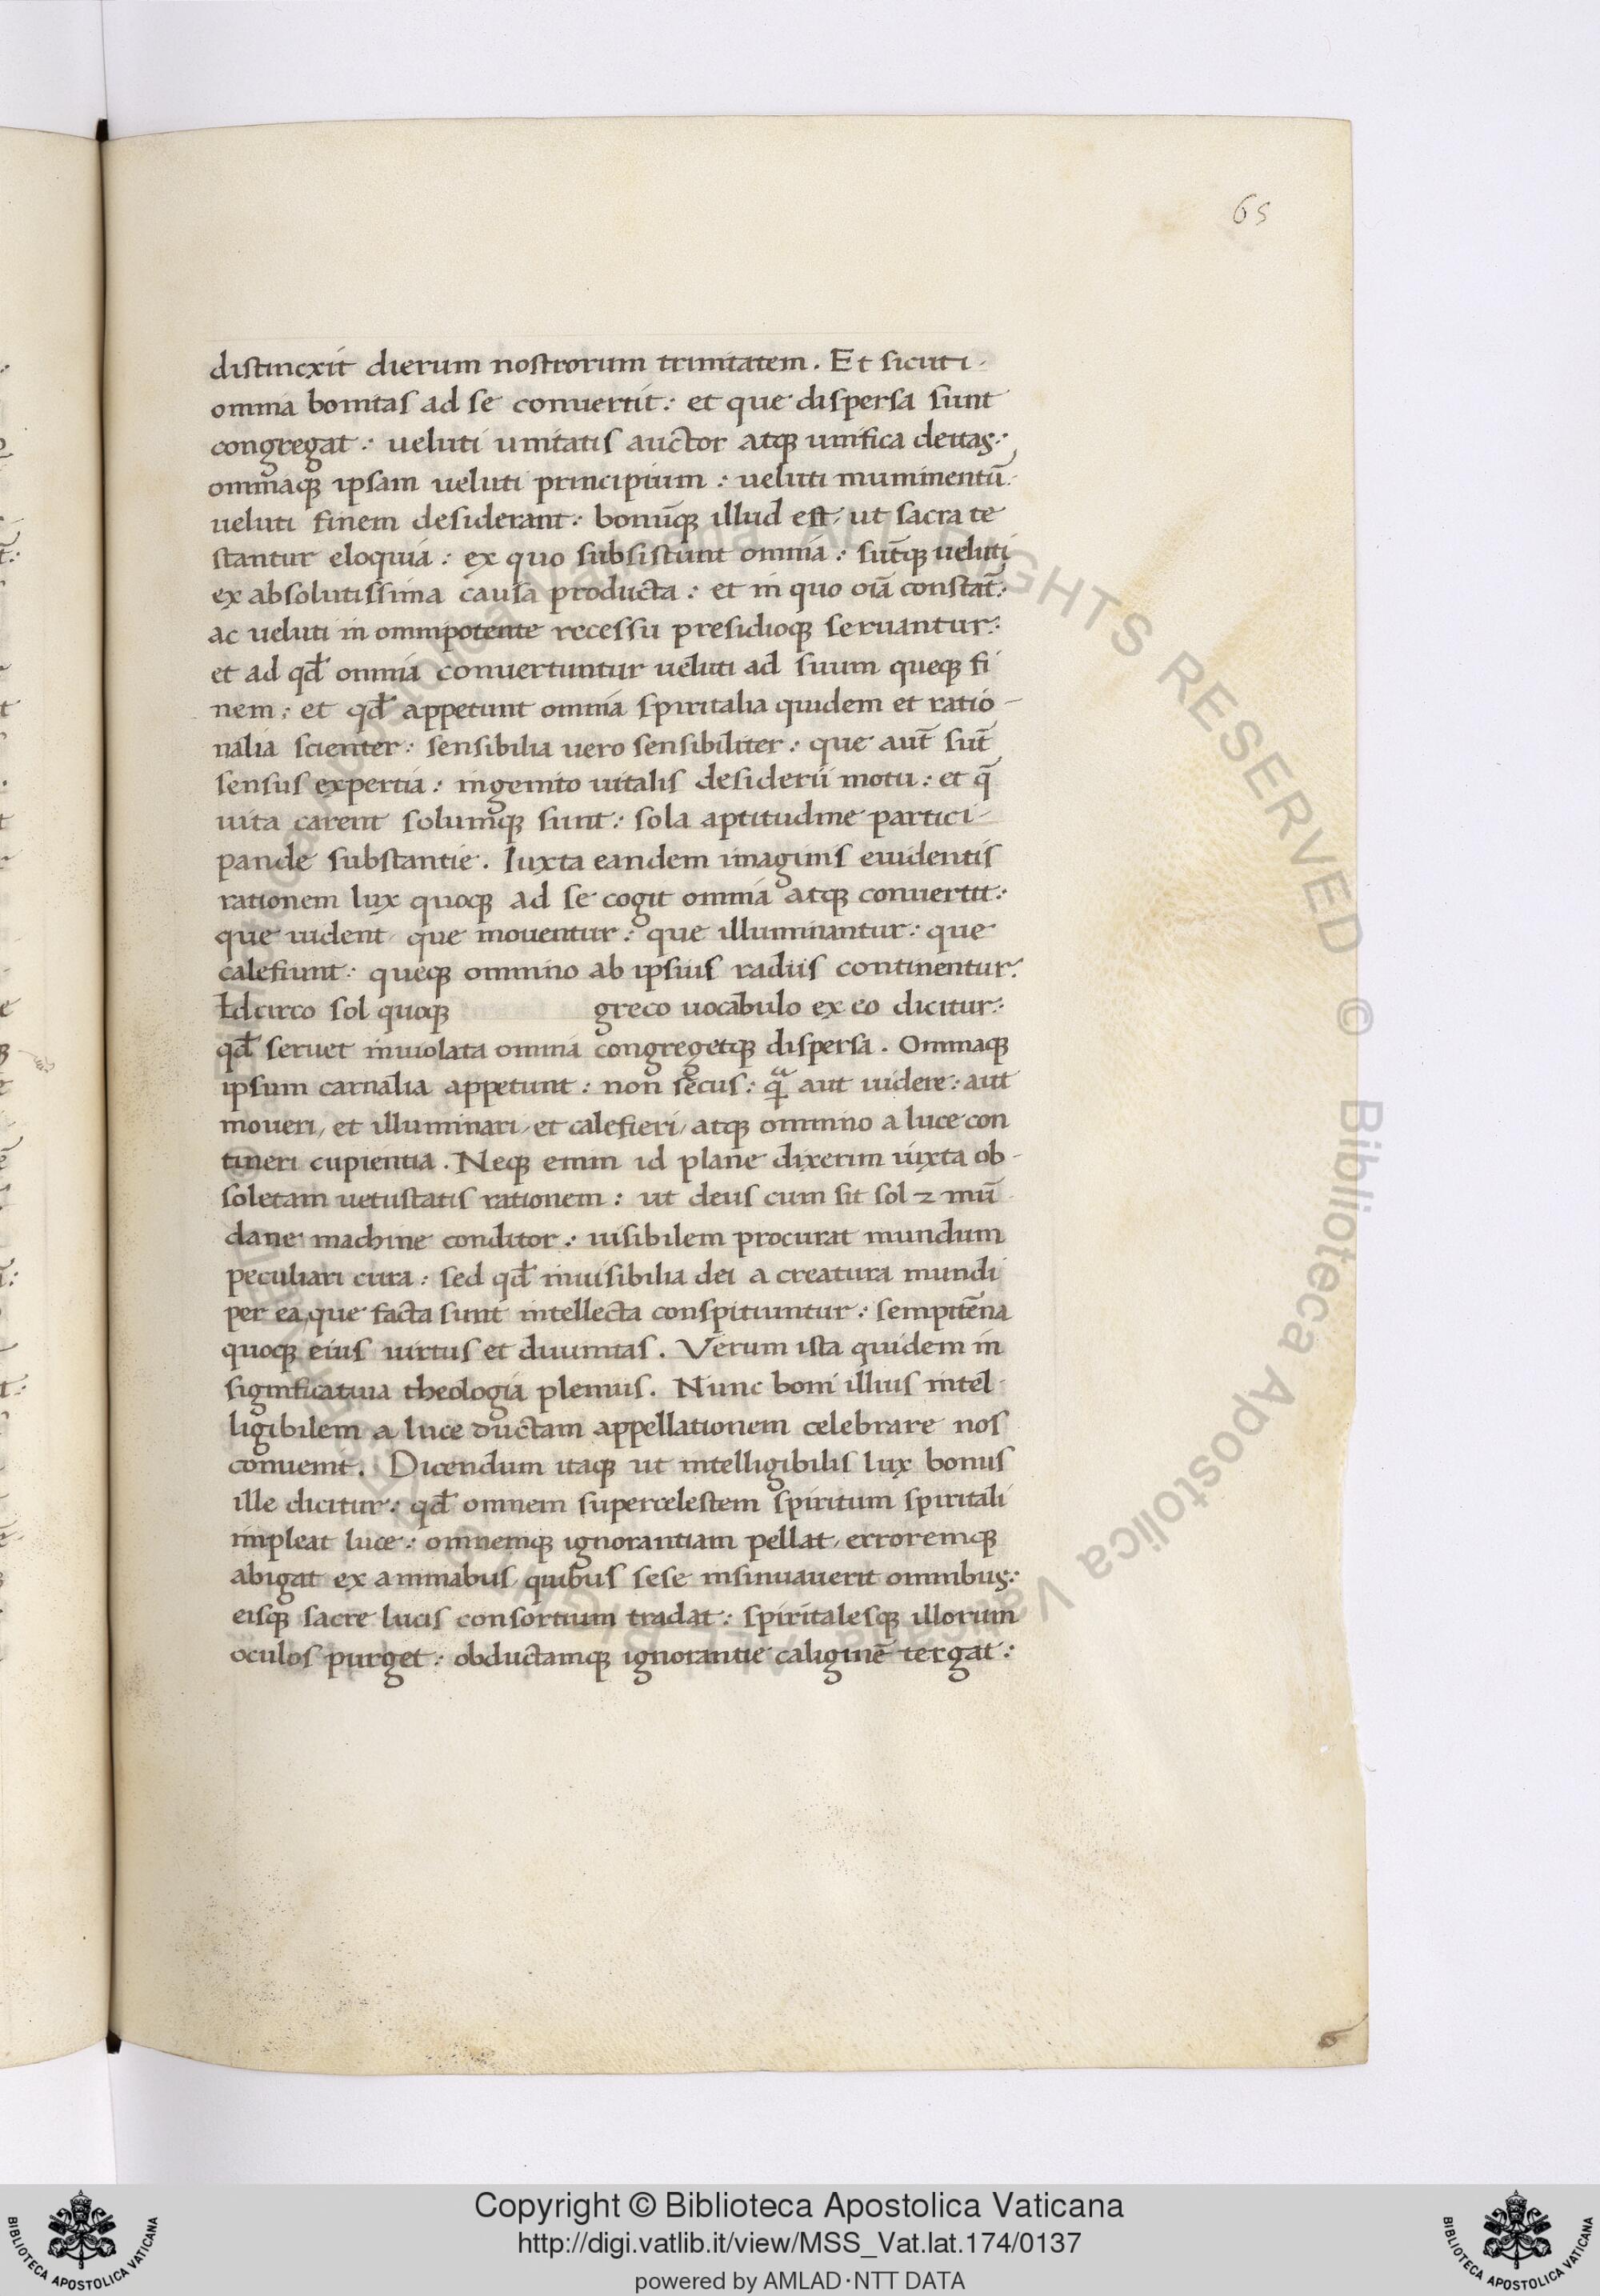 65
distincxit dierum nostrorum trinitatem. Et sicuti
omnia bonitas ad se conuertit: et que dispersa sunt
congregat: ueluti unitatis auctor atqꝫ unifica deitas:
omniaqꝫ ipsam ueluti principium: ueluti muminentū
ueluti finem desiderant: bonūqꝫ illud est, ut sacra te
stantur eloquia: ex quo subsistunt omnia: sūtqꝫ ueluti
ex absolutissima causa producta: et in quo oīa constāt:
ac ueluti in omnipotente recessu presidioqꝫ seruantur:
et ad qđ omnia conuertuntur ueluti ad suum queqꝫ fi
nem: et qđ appetunt omnia spiritalia quidem et ratio-
nalia scienter: sensibilia uero sensibiliter: que aut̄ sūt
sensus expertia: ingenito uitalis desiderii motu: et q̄
uita carent solumqꝫ sunt: sola aptitudine partici-
pande substantie. Iuxta eandem imaginis euidentis
rationem lux quoqꝫ ad se cogit omnia atqꝫ conuertit:
que uident, que mouentur: que illuminantur: que
calefiunt: queqꝫ omnino ab ipsius radiis continentur:
Idcirco sol quoqꝫ greco uocabulo ex eo dicitur:
qđ seruet inuiolata omnia congregetqꝫ dispersa. Omniaqꝫ
ipsum carnalia appetunt: non secus: qᷓ aut uidere: aut
moueri, et illuminari, et calefieri, atqꝫ omnino a luce con
tineri cupientia. Neqꝫ enim id plane dixerim iuxta ob-
soletam uetustatis rationem: ut deus cum sit sol ⁊ mū
dane machine conditor: uisibilem procurat mundum
peculiari cura: sed qđ inuisibilia dei a creatura mundi
per ea, que facta sunt intellecta conspitiuntur: sempitēna
quoqꝫ eius uirtus et diuinitas. Verum ista quidem in
significatiua theologia plenius. Nunc boni illius intel-
ligibilem a luce ductam appellationem celebrare nos
conuenit. Dicendum itaqꝫ ut intelligibilis lux bonus
ille dicitur: qđ omnem supercelestem spiritum spiritali
impleat luce: omnemqꝫ ignorantiam pellat, erroremqꝫ
abigat ex animabus, quibus sese insinuauerit omnibus:
eisqꝫ sacre lucis consortium tradat: spiritalesqꝫ illorum
oculos purget: obductamqꝫ ignorantie caliginē tergat:
Copyright © Biblioteca Apostolica Vaticana
http://digi.vatlib.it/view/MSS_Vat.lat.174/0137
powered by AMLAD·NTT DATA
BIBLIOTECA APOSTOLICA VATICANA
BIBLIOTECA APOSTOLICA VATICANA